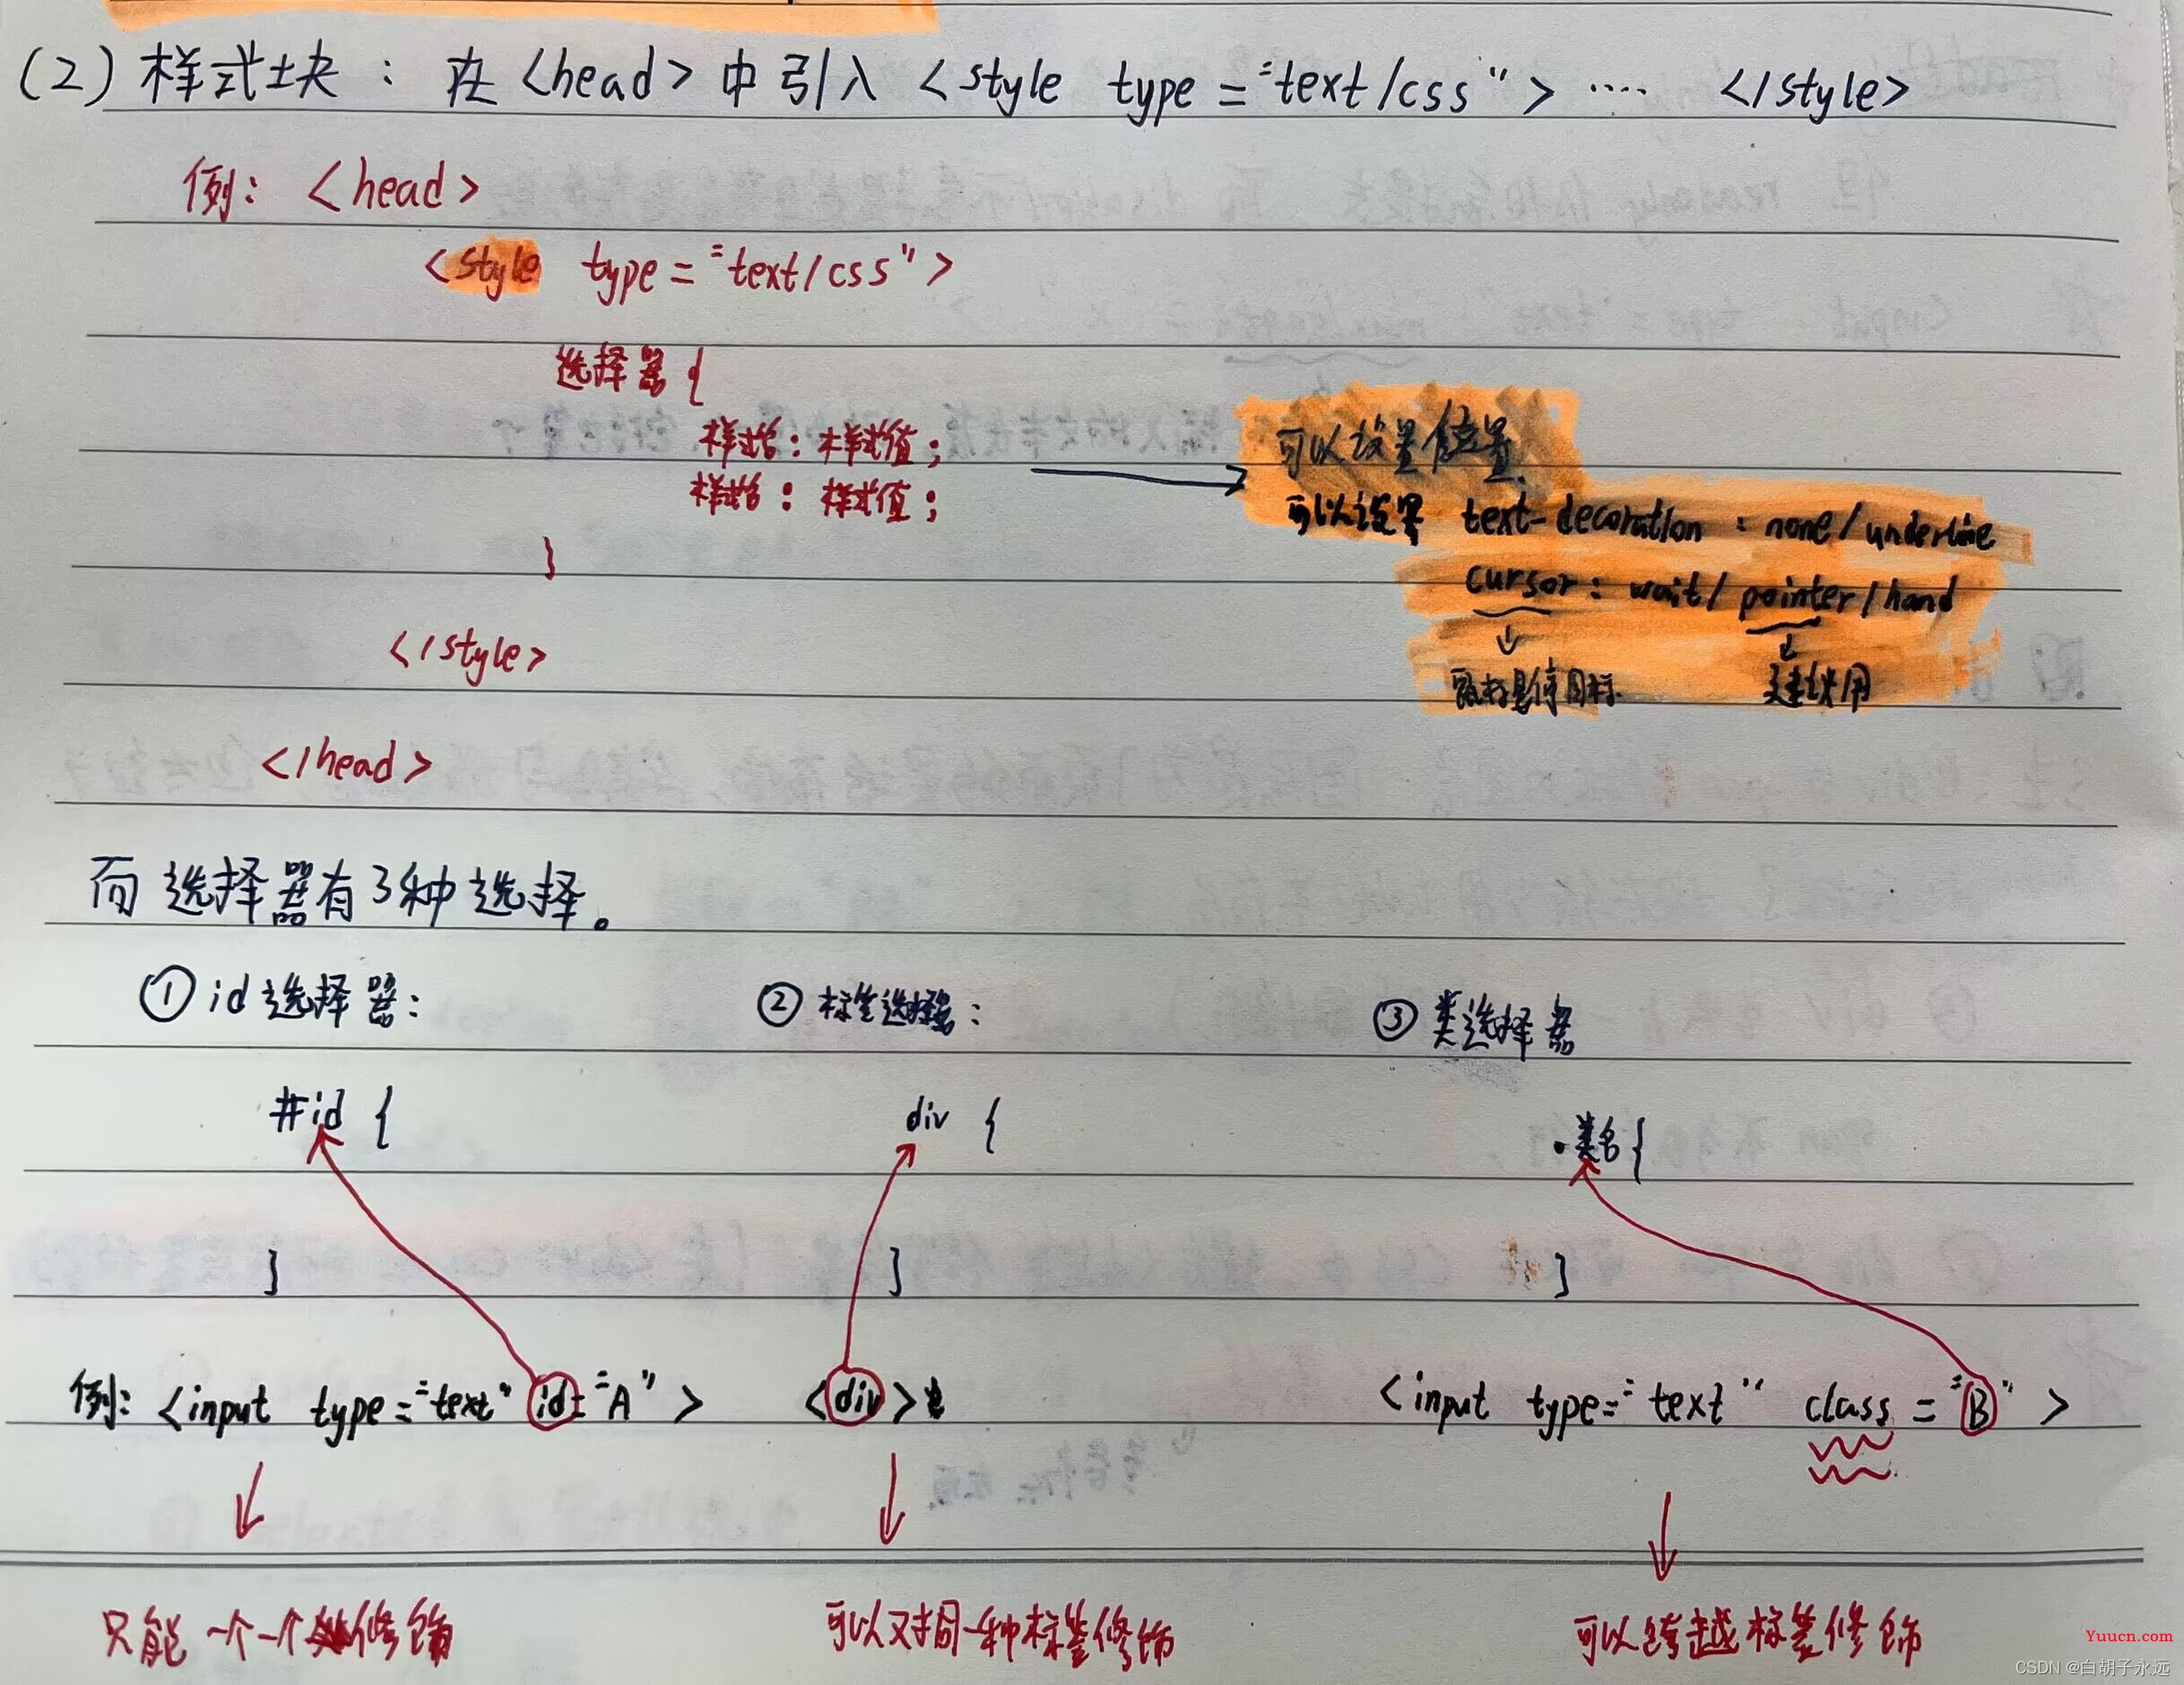 (2) 样式块: 在<head>中引入 <style type="text/css"> .... </style>
例: <head>
<style type="text/css">
选择器{
样式名: 样式值;
样式名: 样式值;
}
</style>
</head>
可以设置位置.
可以设置 text-decoration: none/underline
cursor: wait/pointer/hand
鼠标悬停图标.
建议用
而选择器有3种选择。
① id选择器:
#id {
}
例: <input type="text" id="A">
只能一个一个修饰
② 标签选择器:
div {
}
<div>
可以对同一种标签修饰
③ 类选择器
.类名{
}
<input type="text" class="B">
可以跨越标签修饰
Yuucn.com
CSDN @白胡子永远